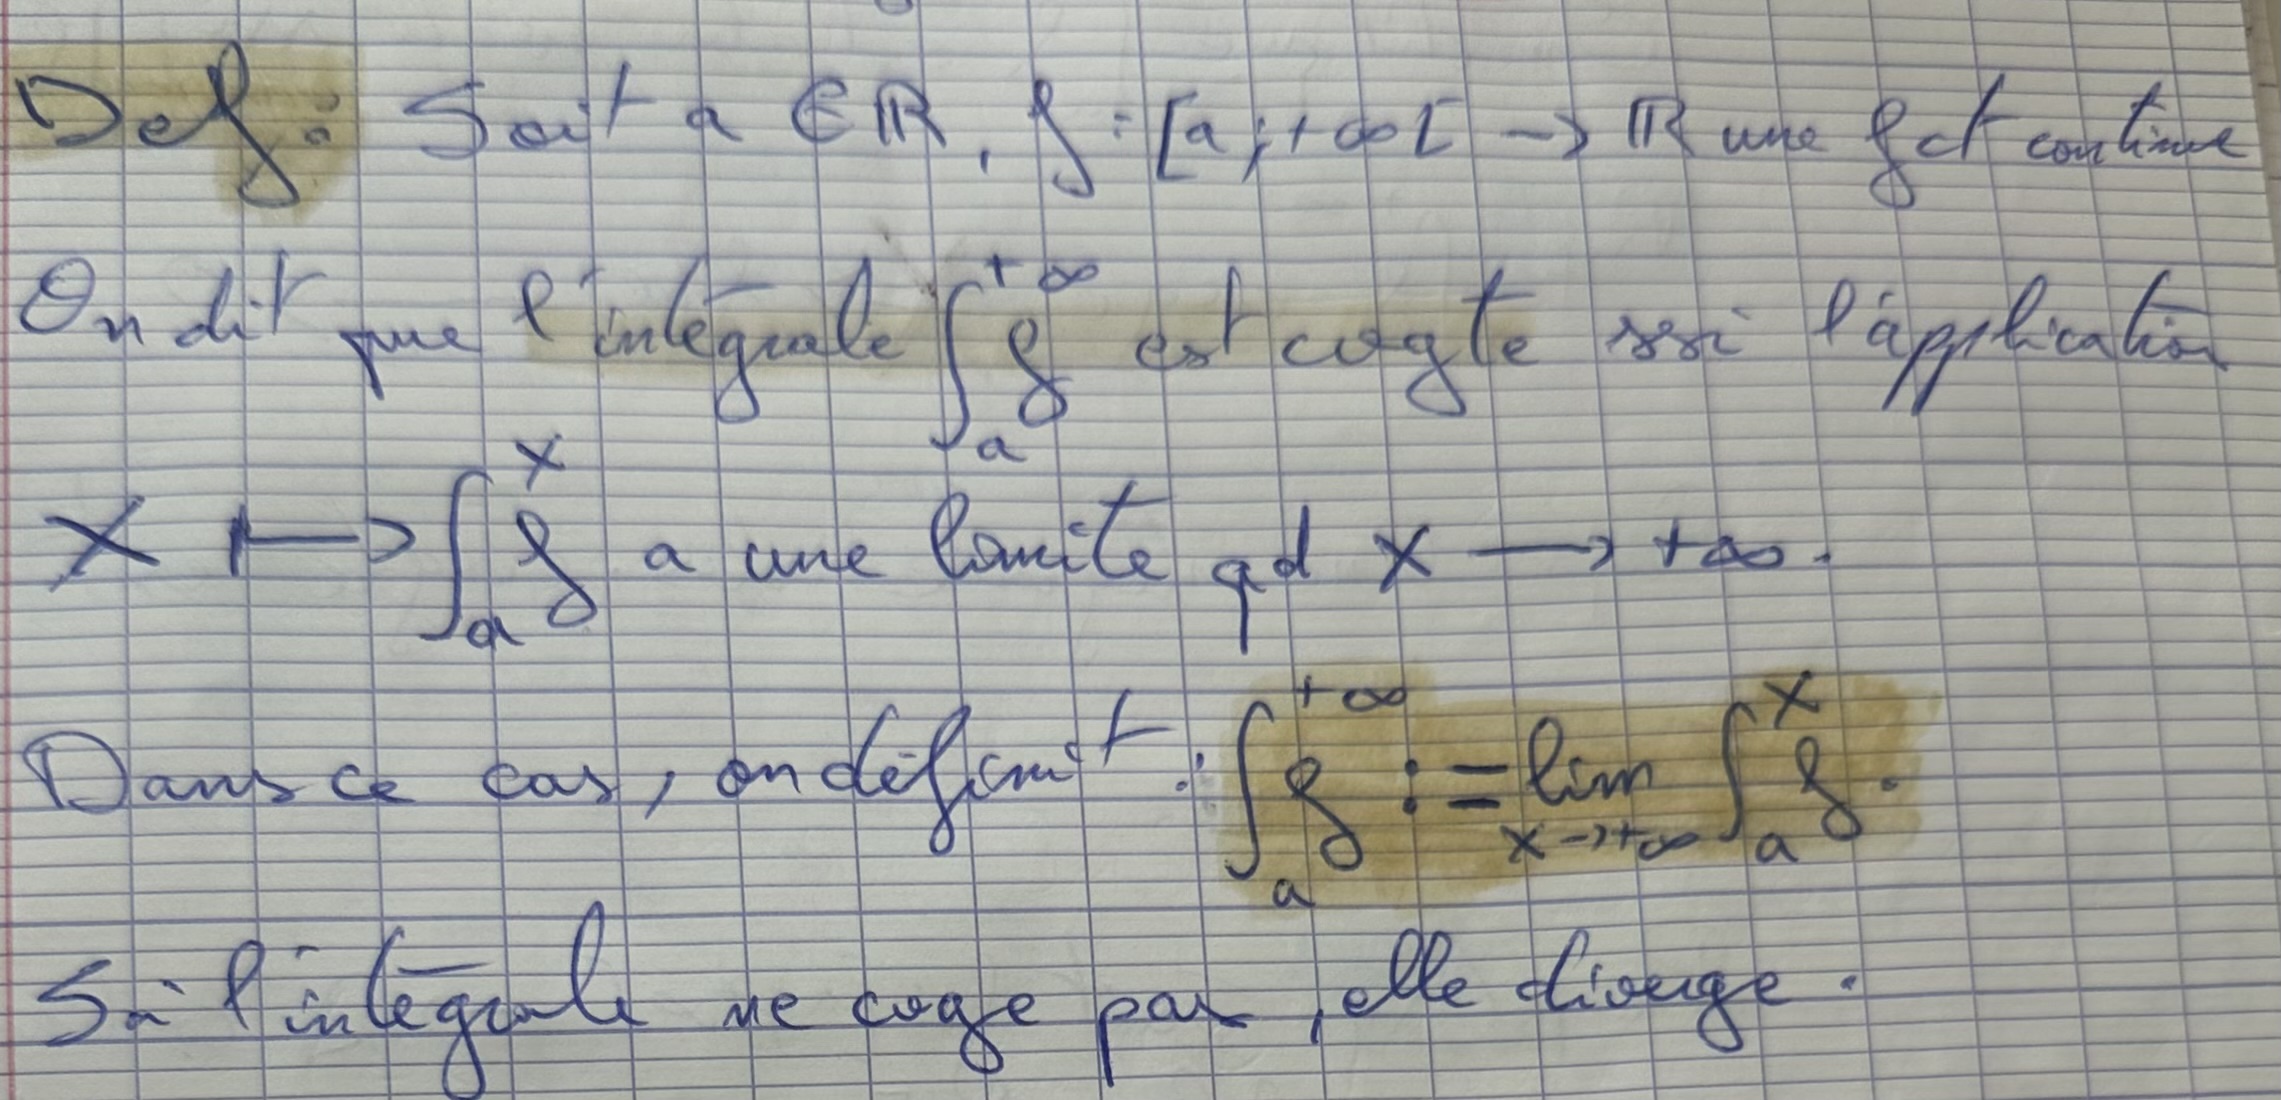 Def : Soit a ∈ ℝ, f : [a ; +∞[ → ℝ une fct continue
On dit que l'intégrale ∫_a^{+∞} f est cvgte ssi l'application
X ↦ ∫_a^X f a une limite qd X → +∞.
Dans ce cas, on définit : ∫_a^{+∞} f := lim_{X→+∞} ∫_a^X f.
Si l'intégrale ne cvge pas, elle diverge.